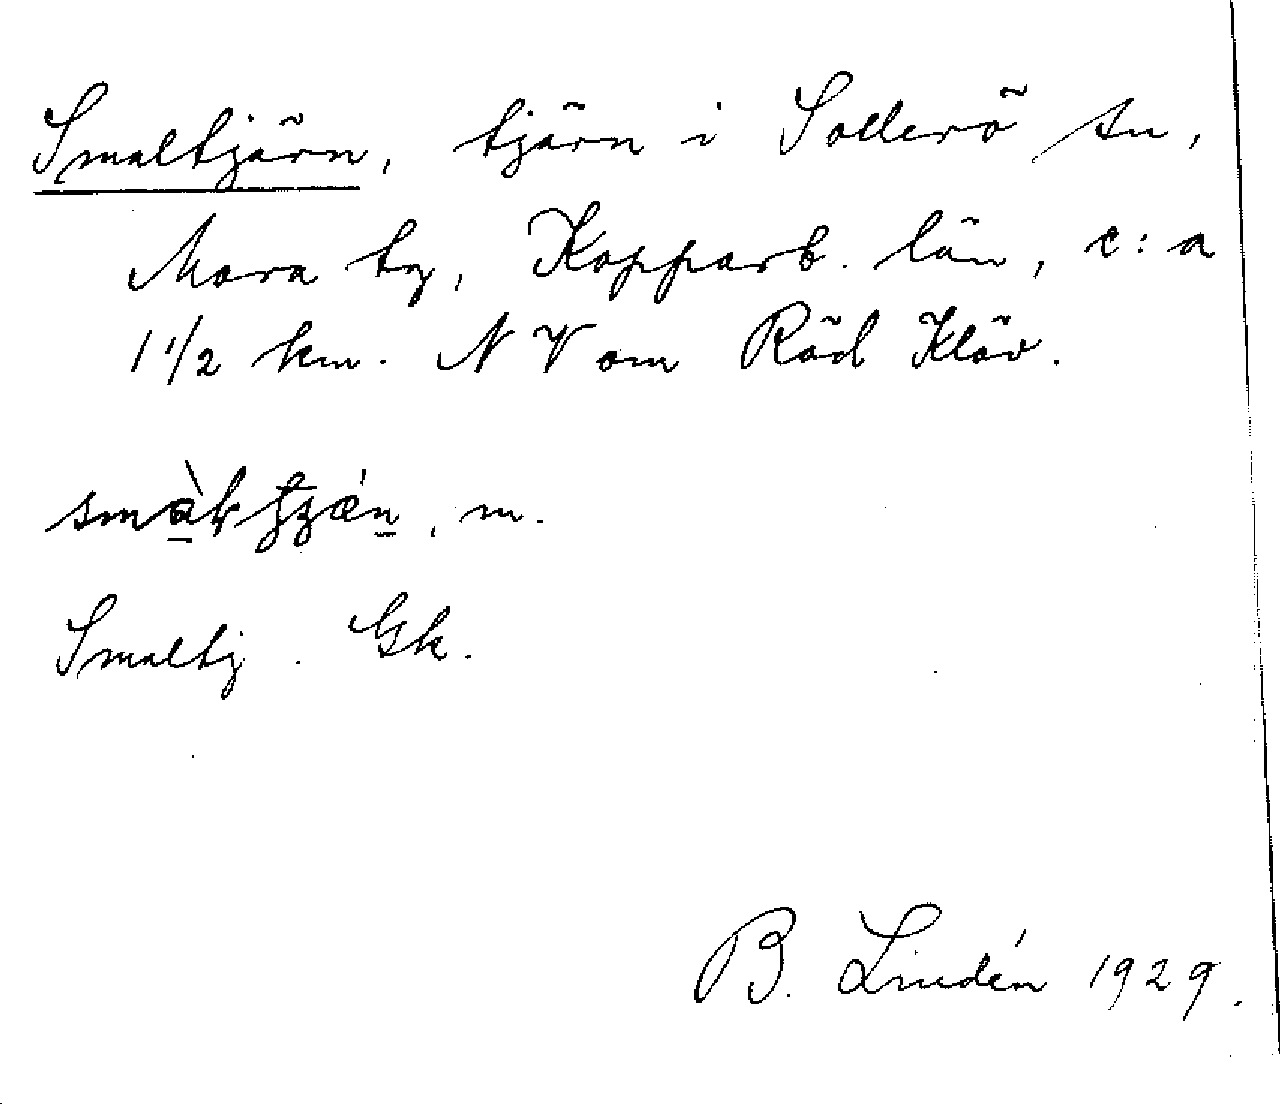 Smaltjärn, tjärn i Sollerö sn,
Mora tg, Kopparb. län, c:a
1 1/2 km. NV om Röd Klöv.
, m.
Smaltj. Gk.
B. Lindén 1929.